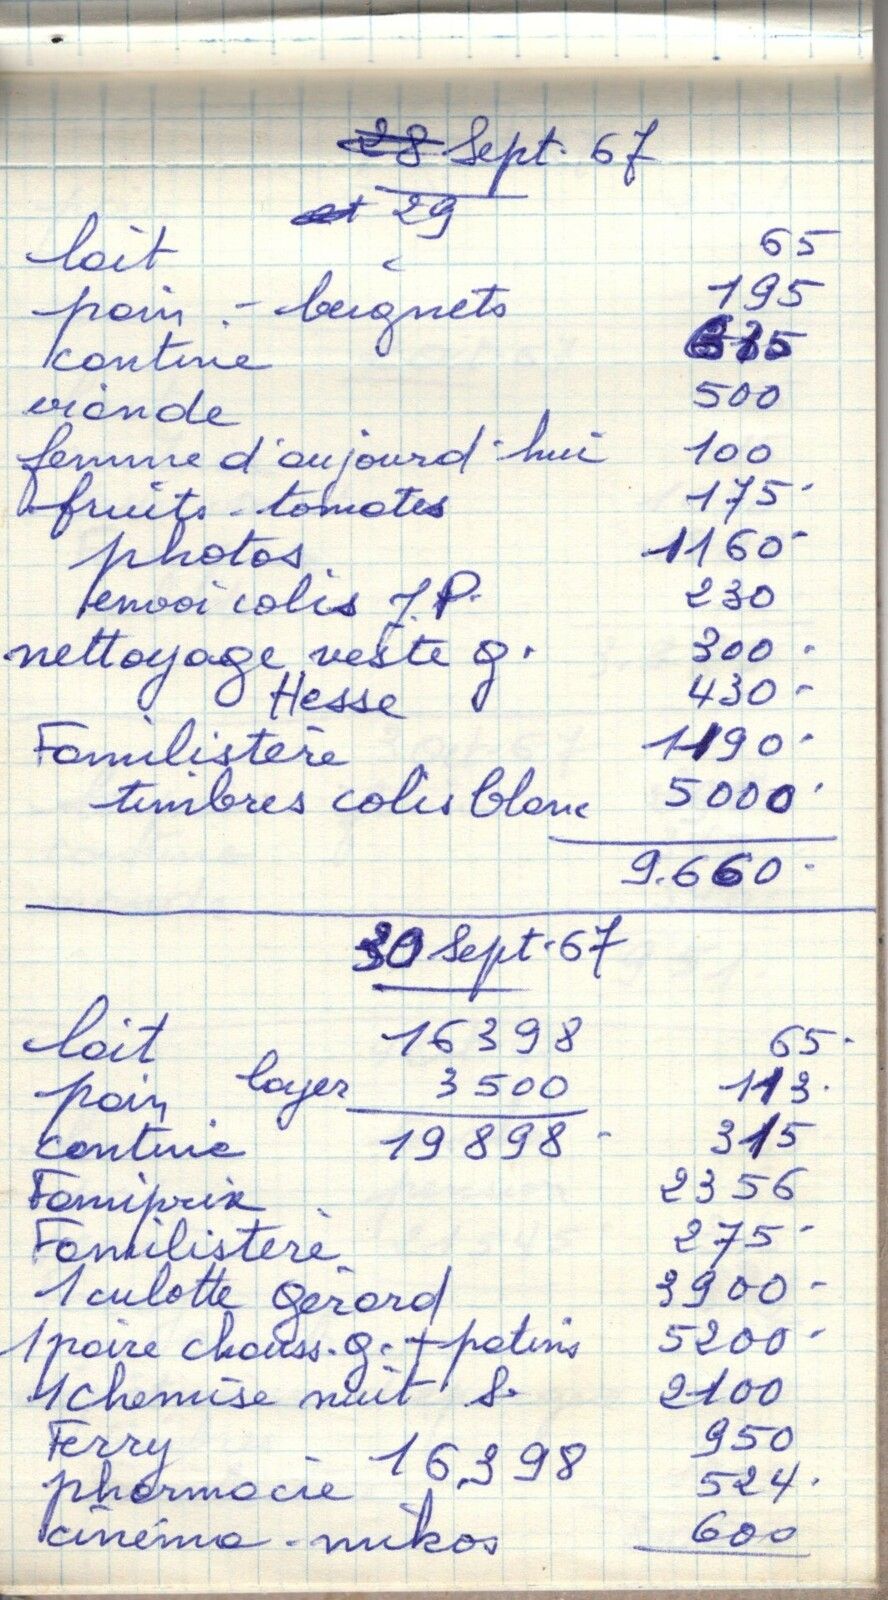 28 Sept. 67
et 29
lait 65
pain - beignets 195
cantine 315
viande 500
femme d'aujourd'hui 100
fruits - tomates 175-
photos 1160-
envoi colis J.P. 230
nettoyage veste g. 300-
Hesse 430-
Familistère 1190-
timbres colis blanc 5000-
9.660-
30 Sept. 67
lait 16398 65-
pain loyer 3500 113-
cantine 19898- 315
Famiprix 2356
Familistère 275-
1 culotte Gérard 3900-
1 paire chauss. g. + patins 5200-
1 chemise nuit S. 2100
Ferry 950
pharmacie 16398 524-
cinéma - mikos 600